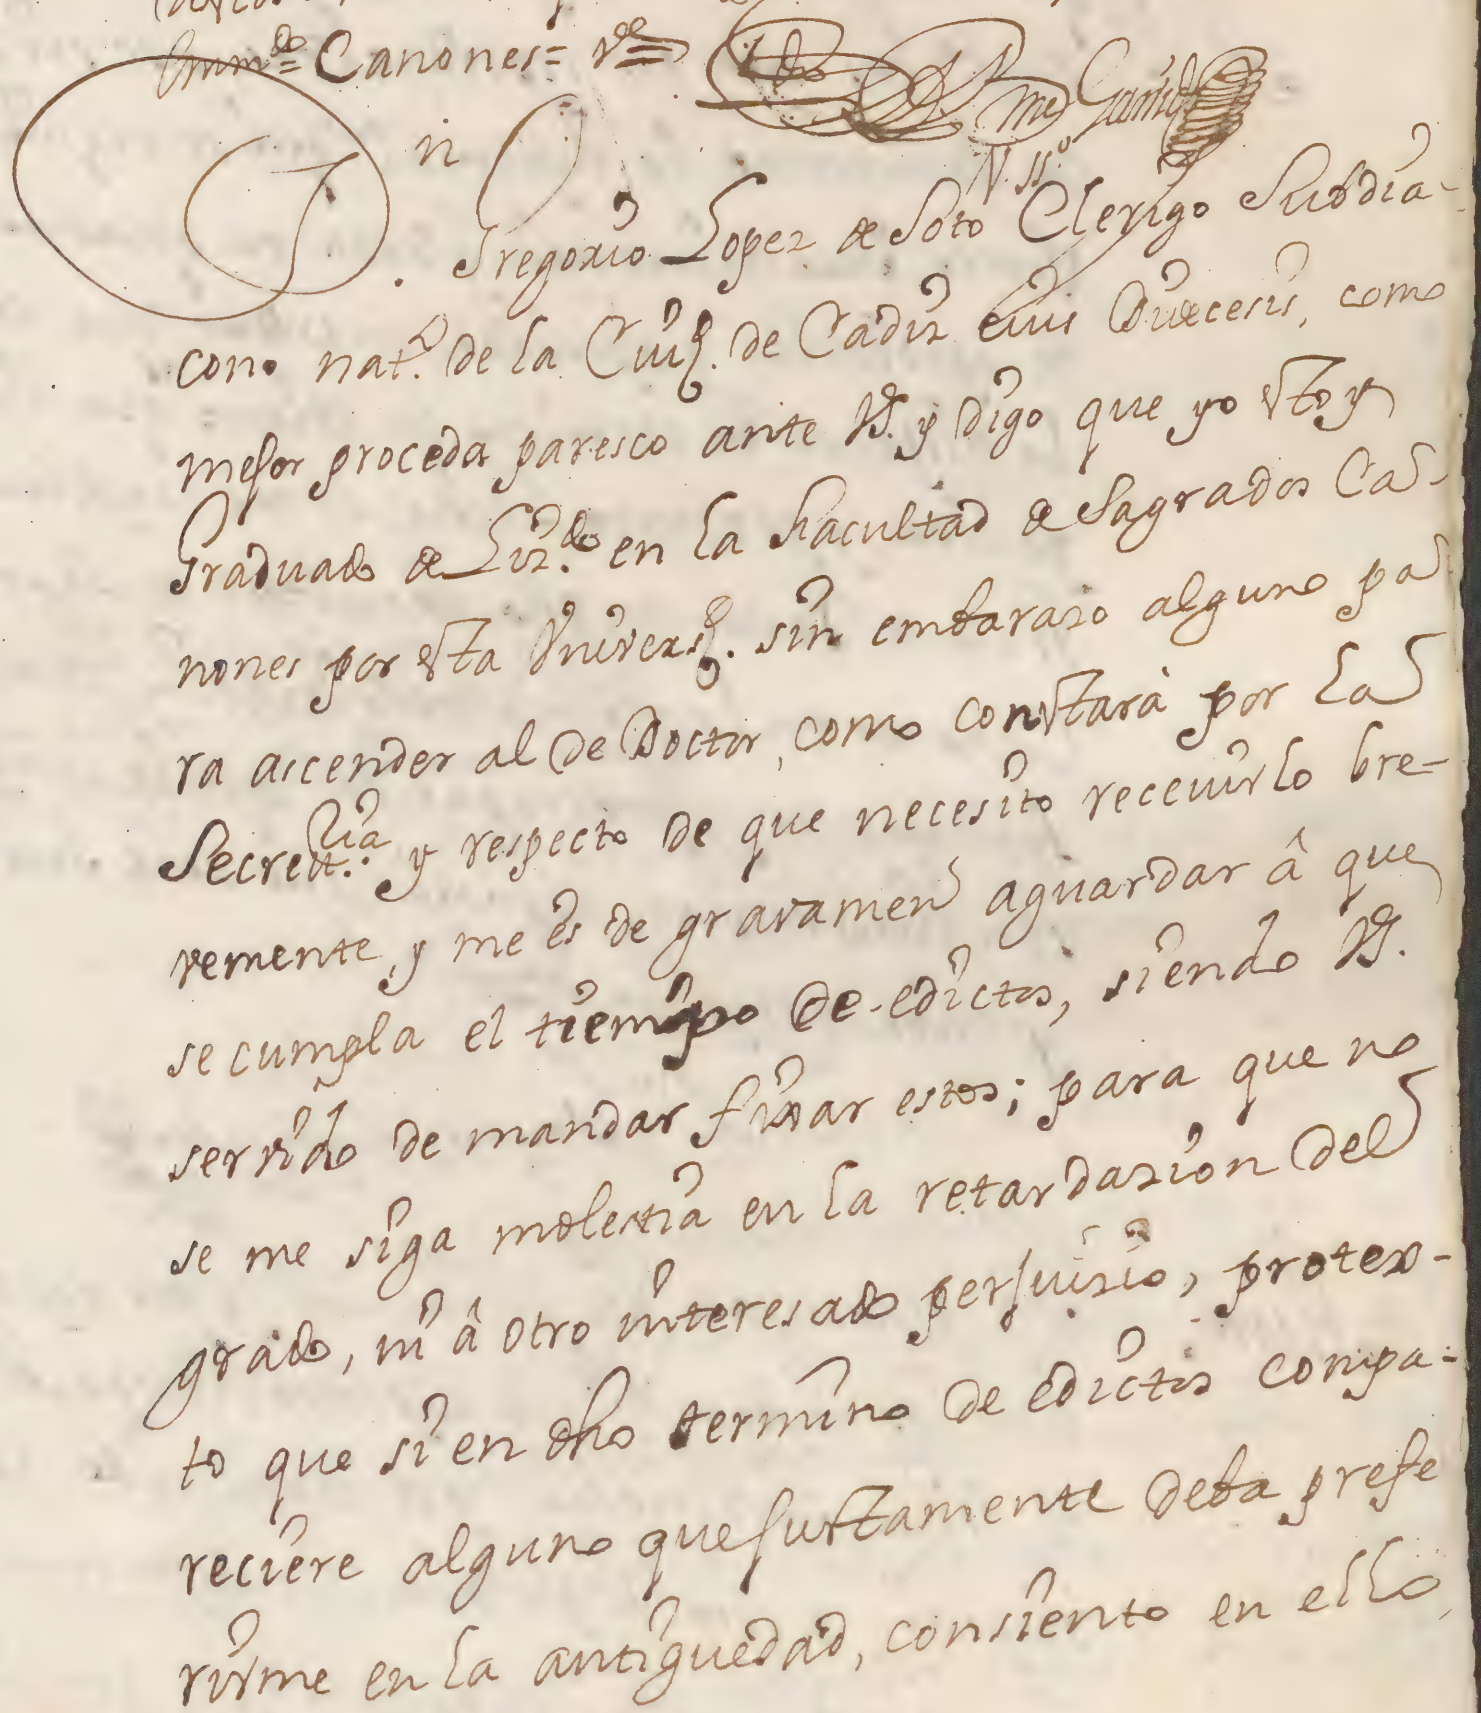 Canones=
Gregorio Lopez de Soto Clerigo Subdia-
cono nat.l de la Ciud. de Cadiz eius Diœcesis, como
mejor proceda paresco ante VS. y digo que yo estoy
Graduado de Liz.do en la Facultad de Sagrados Ca-
nones por esta Universd. sin embarazo alguno pa
ra ascender al de Doctor, como constarà por la
Secret.ria y respecto de que necesito recevirlo bre-
vemente, y me es de gravamen aguardar â que
se cumpla el tiempo de edictos, siendo VS.
servido de mandar fixar estos; para que no
se me siga molestia en la retardazion del
grado, ni â otro interesado perjuizio, protex-
to que si en dho termino de edictos compa-
reciere alguno que justamente deba prefe
rirme en la antiguedad, consiento en ello,